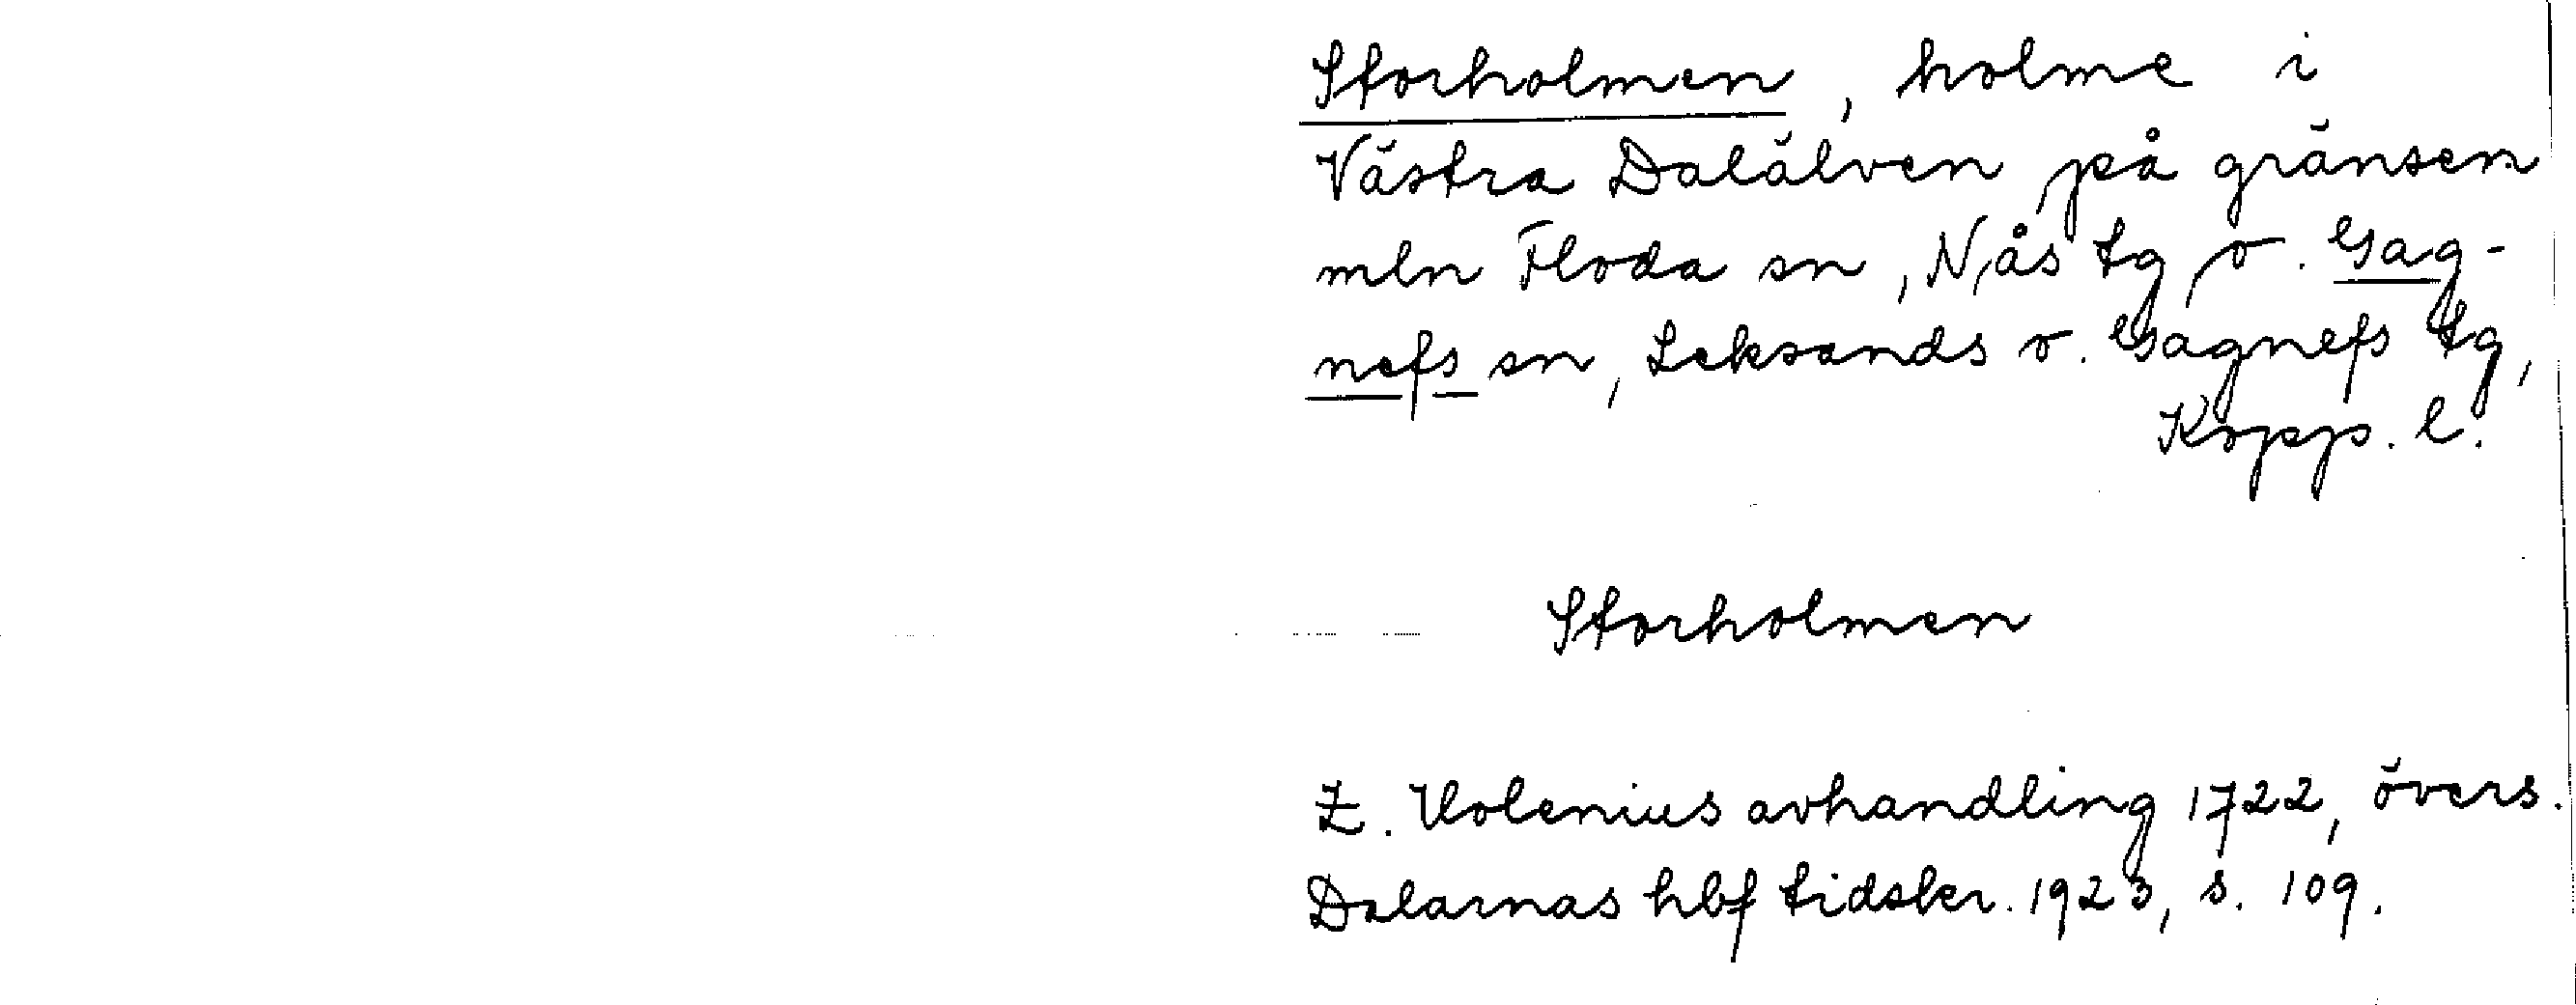 Storholmen, holme i
Västra Dalälven på gränsen
mln Floda sn, Nås tg o. Gag-
nefs sn, Leksands o. Gagnefs tg,
Kopp. l.
Storholmen
Z. Holenius avhandling 1722, övers.
Dalarnas hbf tidskr. 1923, s. 109.